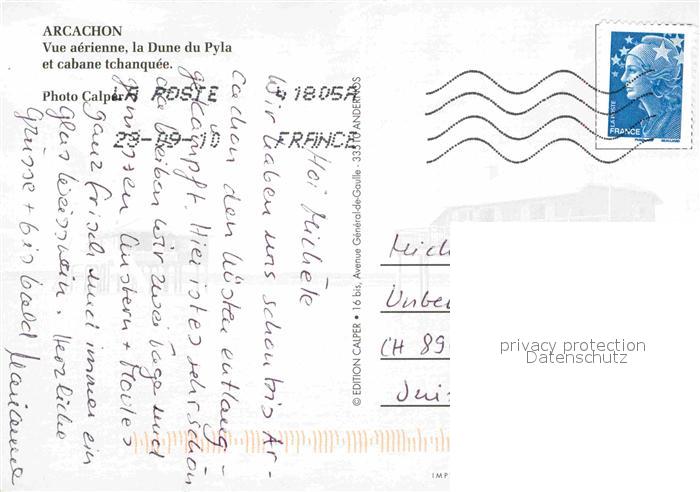 ARCACHON
Vue aérienne, la Dune du Pyla
et cabane tchanquée.
Photo Calper
LA POSTE 41805A
29-09-10 FRANCE
LA POSTE
FRANCE
Hoi Michèle
Wir haben uns schon bis Ar-
cachon den Küsten entlang-
gekämpft. Hier ist es sehr schön
da bleiben wir zwei Tage und
geniessen Austern + Moules
ganz frisch und immer ein
Glas Weisswein. Herzliche
Grüsse + bis bald Marianne
© EDITION CALPER • 16 bis, Avenue Général-de-Gaulle - 33510 ANDERNOS
Mich
Unbe
CH 89
Suis
privacy protection
Datenschutz
IMP